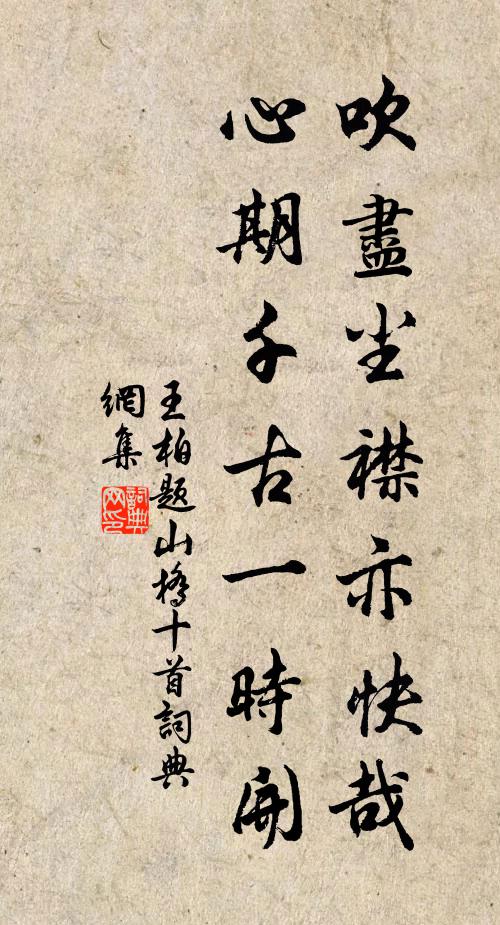 吹盡尘襟亦快哉
心期千古一時開
王柏题山橋十首詞典
網集
詞典
网印